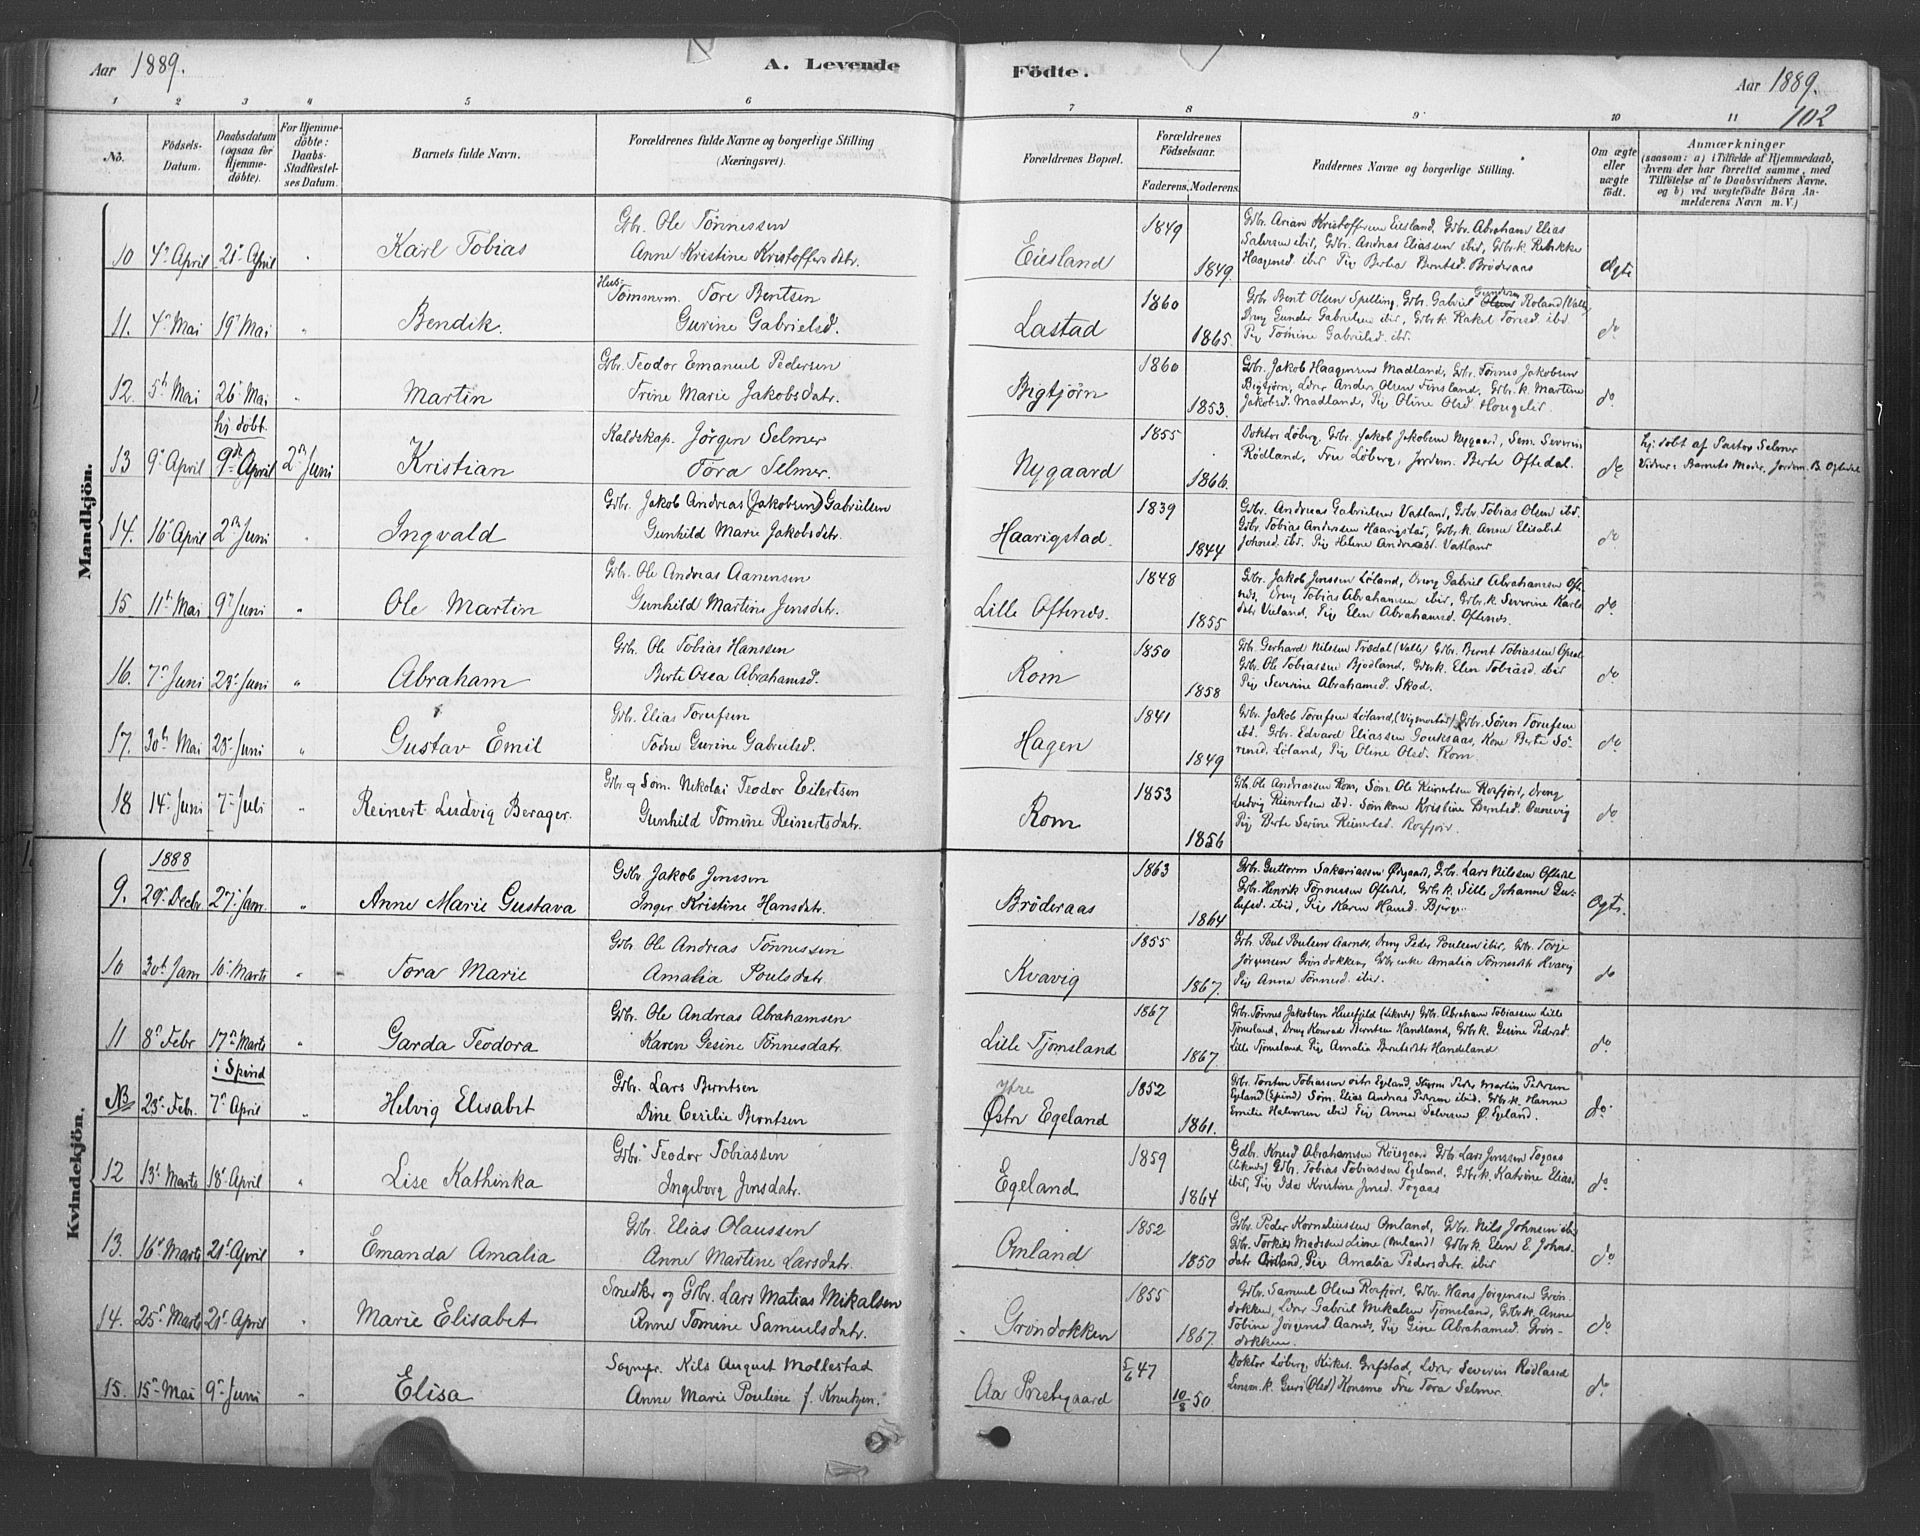 Aar 1889.
A. Levende Födte.
Aar 1889.
102
1 2 3 4 5 6 7 8 9 10 11
No.
Födsels-Datum.
Daabsdatum (ogsaa for Hjemme-döbte).
For Hjemme-döbte: Daabs-Stadfæstel-ses Datum.
Barnets fulde Navn.
Forældrenes fulde Navne og borgerlige Stilling (Næringsvei).
Forældrenes Bopæl.
Forældrenes Födselsaar.
Faderens. Moderens.
Faddernes Navne og borgerlige Stilling.
Om ægte eller uægte födt.
Anmærkninger (saasom: a) i Tilfælde af Hjemmedaab, hvem der har forrettet samme, med Tilföielse af to Daabsvidners Navne, og b) ved uægtefödte Börn Anmelderens Navn m. V.)
Mandkjön.
10 4de April 21de April " Karl Tobias
Gbr. Ole Tönnessen
Anne Kristine Kristoffersdtr.
Eiesland 1849 1849
Gbr. Arian Kristoffersen Eiesland, Gbr. Abraham Elias
Salvesen ibid, Gbr. Andreas Eliassen ibid, Gbr.k Rebekke
Haagensd. ibid Pig Bertea Berntsd. Bröderaas
Ægte
11. 4de Mai 19de Mai " Bendik.
Hus-
Tömmerm. Tore Bentsen
Gurine Gabrielsd.
Lastad 1860 1865.
Gbr Bent Olsen Spilling, Gbr. Gabriel Gundersen Roland (Valle)
Dreng Gunder Gabrielsen ibid, Gbr.k Rakel Toresd. ibd.
Pig Tomine Gabrielsd. ibd.
do
12. 5te Mai 26de Mai " Martin
Gbr. Teodor Emanuel Pedersen
Trine Marie Jakobsdatr.
Bigtjörn 1860 1853.
Gbr. Jakob Haagensen Madland, Gbr. Tönnes Jakobsen
Bigtjörn, Lærer Anders Olsen Finsland, Gbr.k. Martine
Jakobsd. Madland, Pig Oline Olsd
do.
hj. döbt.
13 9de April 9de April 2den Juni Kristian
Kaldskap. Jörgen Selmer
Tora Selmer.
Nygaard 1855 1866.
Doktor Löberg, Gbr. Jakob Jakobsen Nygaard, Sem. Severin
Rödland, Frue Löberg, Jordem. Berte Oftedal.
do
hj. döbt af Pastor Selmer
Vidner: Barnets Moder, Jordem. B. Oftedal
14. 16de April 2den Juni " Ingvald
Gbr. Jakob Andreas (Jakobsen) Gabrielsen
Gunhild Marie Jakobsdatr.
Haarigstad. 1839 1844
Gbr. Andreas Gabrielsen Vatland, Gbr. Tobias Olsen ibd.
Gbr. Tobias Andersen Haarigstad, Gbr.k. Anne Elisabet
Johnsd. ibd. Pig Helene Andreasd. Vatland
do
15. 11te Mai 9de Juni " Ole Martin
Gbr. Ole Andreas Aanensen
Gunhild Martine Jensdatr.
Lille Oftenæs. 1848 1855
Gbr. Jakob Jenssen Löland, Dreng Gabriel Abrahamsen Oft-
næs. Dreng Tobias Abrahamsen ibid, Gbr.k Severine Karls
datr Vieland, Pig Elen Abrahamsd. Oftenæs.
do
16. 7de Juni 23de Juni " Abraham
Gbr. Ole Tobias Hanssen
Berte Osea Abrahamsd.
Rom 1850 1858
Gbr. Gerhard Nilsen Trædal (Valle) Gbr. Bernt Tobiassen
Gbr. Ole Tobiassen Bjodland, Gbr.k. Elen Tobiasd. ibid
Pig Severine Abrahamsd. Skod.
do.
17. 30te Mai 23de Juni " Gustav Emil
Gbr. Elias Torufsen
Todne Gurine Gabrielsd.
Hagen 1841 1849
Gbr. Jakob Torufsen Löland, (Vigmostad) Gbr. Sören Torufsen
ibd. Gbr. Edvard Eliassen Gouksaas, Kone Berte Sö-
rensd. Löland, Pig Oline Olsd. Rom
do.
18 14de Juni 7de Juli " Reinert Ludvig Berager.
Gbr og Söm. Nikolai Teodor Eilertsen
Gunhild Tomine Reinertsdatr.
Rom 1853 1856
Gbr. Ole Andreassen Rom, Söm. Ole Reinertsen Rosfjord, Dreng
Ludvig Reinertsen ibd. Sömkone Kristine Berntsd.
Pig Berte Serine Reinertsd. Rosfjord.
do.
Kvindekjön.
1888
9. 29de Decbr 27de Janr " Anne Marie Gustava
Gbr. Jakob Jenssen
Inger Kristine Hansdatr.
Bröderaas 1863 1864
Gbr. Guttorm Sakariassen Ödegaard, Gbr. Lars Nilssen Oftedal
Gbr. Henrik Tönnessen Oftedal, Gbr.k. Sille Johanne
ibid, Pig Karen Hansd. Bjærge.
Ægte.
10 30te Janr 10de Marts " Tora Marie
Gbr. Ole Andreas Tönnessen
Amalia Poulsdatr.
Kvavig 1855 1867.
Gbr. Poul Poulsen Aarnes, Dreng Peder Poulsen ibid, Gbr. Torje
Jörgensen Gröndokken, Gbr.enke Amalia Tönnesdtr Kvavig
Pig Anna Tönnesd. ibid.
do
11 8de Febr 17de Marts " Garda Teodora
Gbr. Ole Andreas Abrahamsen
Karen Gesine Tönnesdatr.
Lille Tjomsland 1867 1867.
Gbr. Tönnes Jakobsen (Lknes) Gbr. Abraham Tobiassen Lille
Tjomsland, Dreng Konrad Berntsen Handeland, Gbr.k. Gesine Pedersd.
Lille Tjomsland Pig Amalia Berntsdtr Handeland
do.
i Spind
NB 23de Febr. 7de April " Helvig Elisabet
Gbr. Lars Berntsen
Dine Cecilie Berntsen
Ytre
Östre Egeland 1852 1861.
Gbr. Torsten Tobiassen östre Egeland, Styrm Peder Martin Pedersen
Egeland (Spind) Söm. Elias Andreas Pedersen ibid. Gbr.k. Hanne
Emilie Halvorsen ibid Pig Anna Salvesen Ö. Egeland.
do.
12 13de Marts 18de April " Lise Kathinka
Gbr. Teodor Tobiassen
Ingeborg Jensdatr.
Egeland 1859 1864
Gdbr. Knud Abrahamsen Röisgaard Gbr Lars Jenssen Togaas
(Lknes) Gbr. Tobias Tobiassen Egeland, Gbr.k Katrine Eliasd
ibid, Pig Ida Kristine Jensd. Togaas
do.
13. 16de Marts 21de April " Emanda Amalia
Gbr. Elias Olaussen
Anne Martine Larsdatr.
Omland 1852 1850
Gbr. Peder Korneliussen Omland, Gbr. Nils Johnsen ibd
Gbr. Torkild Madssen Liene (Omland) Gbr.k. Elen E. Johns-
datr Omland, Pig Amalia Pedersdatr. ibid
do.
14. 25de Marts 21de April " Marie Elisabet
Snedker og Gbr. Lars Matias Mikalsen
Anne Tomine Samuelsdatr.
Gröndokken 1855 1867.
Gbr. Samuel Olsen Rosfjord, Gbr. Hans Jörgensen Grön-
dokken, Lærer Gabriel Mikalsen Tjomsland, Gbr.k. Anne
Tobine Jörgensd Aarnes, Pig Gine Abrahamsd. Grön-
dokken.
do
15. 15de Mai 9de Juni " Elisa
Sognepr. Nils August Mollestad
Anne Marie Pouline f. Knutzen.
Aa Præstegaard 5/6 47 10/8 50
Doktor Löberg, Kirkes. Grefstad, Lærer Severin Rödland
Lensm.k. Guri (Olsd) Konsmo Frue Tora Selmer.
do.